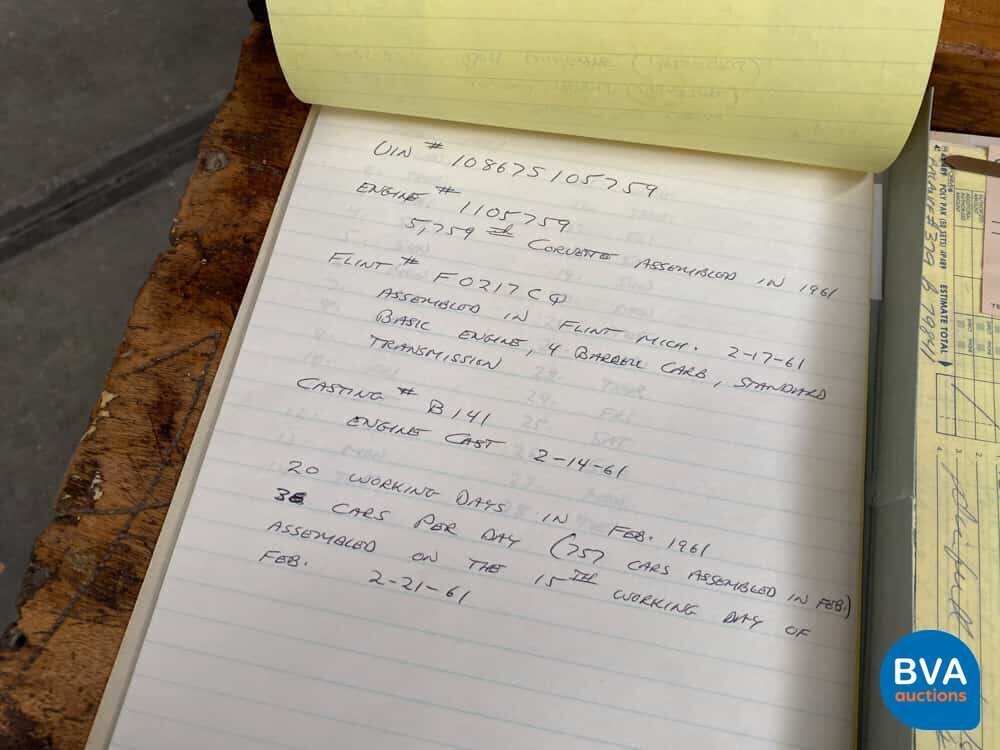 VIN # 10867S105759
ENGINE # 1105759
5,759 th CORVETTE ASSEMBLED IN 1961
FLINT # F0217CQ
ASSEMBLED IN FLINT MICH. 2-17-61
BASIC ENGINE, 4 BARRELL CARB, STANDARD
TRANSMISSION
CASTING # B141
ENGINE CAST 2-14-61
20 WORKING DAYS IN FEB. 1961
38 CARS PER DAY (757 CARS ASSEMBLED IN FEB.)
ASSEMBLED ON THE 15TH WORKING DAY OF
FEB. 2-21-61
ESTIMATE TOTAL
BVA
auctions